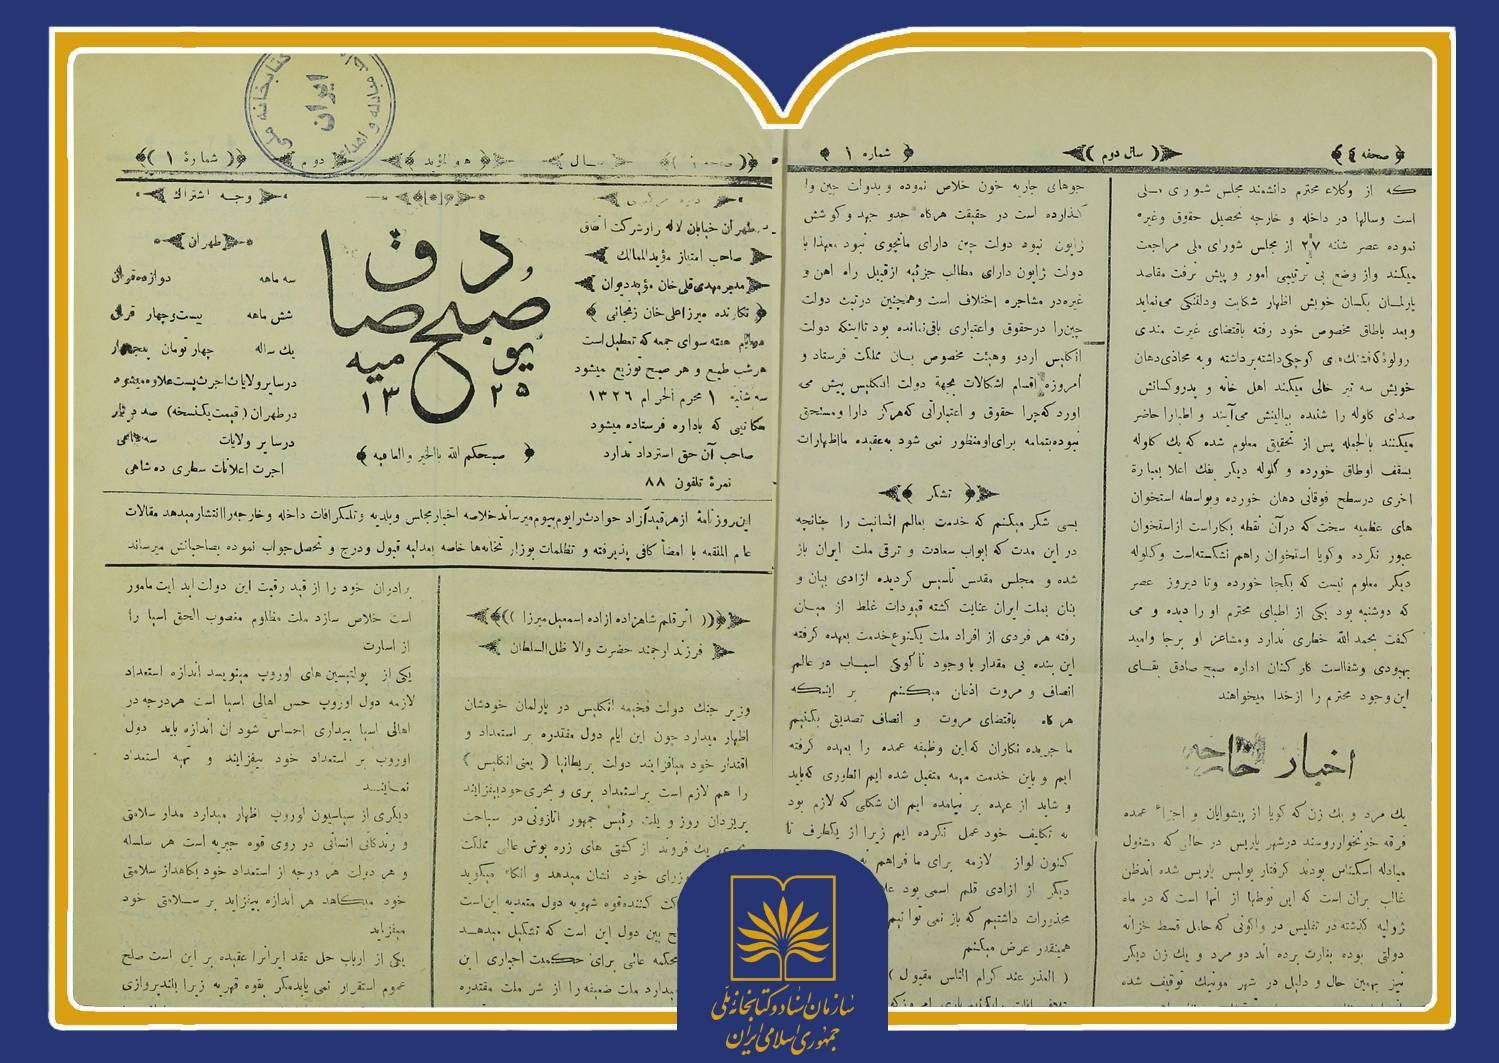 صحفه ٤
( سال دوم )
شماره ١
که از وکلاء محترم دانشمند مجلس شورای ملی
است وسالها در داخله و خارجه تحصیل حقوق وغیره
نموده عصر شنبه ٢٧ از مجلس شورای ملی مراجعت
میکند واز وضع بی ترتیبی امور و پیش نرفت مقاصد
پارلمان بکسان خویش اظهار شکایت ودلتنکی می‌نماید
وبعد باطاق مخصوص خود رفته باقتضای غیرت مندی
خویش سه تیر خالی میکند اهل خانه و پدروکسانش
صدای کلوله را شنیده ببالینش می‌آیند و اطبارا حاضر
میکنند بالجمله پس از تحقیق معلوم شده که یك کلوله
بسقف اوطاق خورده و کلوله دیگر بفك اعلا بعبارة
اخری درسطح فوقانی دهان خورده وبواسطه استخوان
های عظمیه سخت که درآن نقطه بکاراست ازاستخوان
عبور نکرده وکویا استخوان راهم نشکسته‌است وکلوله
دیکر معلوم نیست که بکجا خورده وتا دیروز عصر
که دوشنبه بود یکی از اطبای محترم اورا دیده و می
کفت بحمد الله خطری ندارد ومشاعر او برجا وامید
بهبودی وشفااست کارکنان اداره صبح صادق بقای
این وجود محترم را ازخدا میخواهند
اخبار خارجه
یك مرد و یك زن که کویا از پیشوایان و اجزاء عمده
فرقه خونخوارروسند درشهر پاریس در حالی که مشغول
مبادله اسکناس بودند کرفتار پولیس پاریس شده اندظن
غالب بران است که این نوطها از انها است که در ماه
ژولیه کذشته در تفلیس در واکونی که حامل قسط خزانه
دولتی بوده بغارت برده اند دو مرد و یك زن دیکر
نیز بهمین حال و دلیل در شهر مونیك توقیف شده
جوهای جاریه خون خلاص نموده وبدولت چین وا
کذارده است در حقیقت هرکاه جدو جهد وکوشش
ژاپون نبود دولت چین دارای مانچوی نبود معهذا با
دولت ژاپون دارای مطالب جزئیه ازقبیل راه اهن و
غیره‌در مشاجره و اختلاف است وهمچنین درتبت دولت
چین‌را درحقوق واعتباری باقی‌نمانده بود تااینکه دولت
انکلیس اردو وهیئت مخصوص بان مملکت فرستاد و
امروزه اقسام اشکالات مجهة دولت انکلیس پیش می
اورد که‌چرا حقوق و اعتباراتی که‌هرکز دارا ومستحق
نبوده‌بتمامه برای‌اومنظور نمی شود به‌عقیده مااظهارات
تشکر
بسی شکر میکنم که خدمت بعالم انسانیت را چنانچه
در این مدت که ابواب سعادت و ترقی ملت ایران باز
شده و مجلس مقدس تأسیس کردیده ازادی بیان و
بنان بملت ایران عنایت کشته قیودات غلط از میان
رفته هر فردی از افراد ملت یکنوع‌خدمت بعهده کرفته
این بنده بی مقدار با وجود ناکوکی اسباب در عالم
انصاف و مروت اذعان میکنم بر اینکه
هرکاه باقتضای مروت و انصاف تصدیق بکنیم
ما جریده نکاران که‌این وظیفه عمده را بعهده کرفته
ایم و باین خدمت مهمه متقبل شده ایم انطوری که‌باید
و شاید از عهده بر نیامده ایم ان شکلی که لازم بود
به تکالیف خود عمل نکرده ایم زیرا از یکطرف تا
کنون لوازم لازمه برای ما فراهم
دیکر از ازادی قلم اسمی بود
محذورات داشتیم که باز نمی توانیم
همینقدر عرض میکنم
( العذر عند کرام الناس مقبول )
سال
هو المؤید
دوم
( شمارهٔ ١ )
کتابخانه ملی ایران
مبادله و اهداء
طهران خیابان لاله زارشرکت اتفاق
صاحب امتیاز مؤیدالممالك
مدیرمهدی‌قلی‌خان مؤیددیوان
نکارنده میرزاعلی‌خان زنجانی
ایام هفته سوای جمعه که تعطیل‌است
هرشب طبع و هر صبح توزیع میشود
سه شنبه ١ محرم الحرام ١٣٢٦
مکاتیبی که باداره فرستاده میشود
صاحب آن حق استرداد ندارد
نمرهٔ تلفون ٨٨
صبح صادق
یومیه
١٣٢٥
صبحکم الله بالخیر والعافیه
وجه اشتراك
طهران
سه ماهه دوازده‌قران
شش ماهه بیست‌وچهار قران
یك ساله چهار تومان
درسایرولایات اجرت‌پست‌علاوه‌میشود
درطهران (قیمت‌یك‌نسخه) صد دینار
درسایر ولایات سه‌شاهی
اجرت اعلانات سطری ده شاهی
این روزنامهٔ ازهرقیدآزاد حوادث‌رایوم‌بیوم‌میرساندخلاصه اخبارمجلس وبلدیه وتلکرافات داخله وخارجه‌راانتشارمیدهد مقالات
عام المنفعه با امضأ کافی پذیرفته و تظلمات بوزارتخانه‌ها خاصه بعدلیه قبول ودرج و تحصیل‌جواب نموده بصاحبانش میرساند
(( اثرقلم شاهزاده ازاده اسمعیل‌میرزا ))
فرزند ارجمند حضرت والا ظل‌السلطان
وزیر جنك دولت فخیمه انکلیس در پارلمان خودشان
اظهار میدارد چون این ایام دول مقتدره بر استعداد و
اقتدار خود میافزایند دولت بریطانیا ( یعنی انکلیس )
را هم لازم است براستعداد بری و بحری‌خودبیفزایند
پریزدان روز و یلت رئیس جمهور اتازونی در سیاحت
یك فروند از کشتی های زره پوش عالی مملکت
وزرای خود نشان میدهد و انکاه میکوید
کننده‌قوه شهویه دول متمدیه این‌است
بین دول این است که تشکیل میدهد
محکمه عالی برای حکمیت اجباری این
میدارد ملت ضعیفه را از شر ملت مقتدره
برادران خود را از قید رقیت این دولت‌اید ایت مامور
است خلاص سازد ملت مظلوم مغصوب الحق اسیا را
از اسارت
یکی از پولتیسین های اوروپ مینویسد اندازه استعداد
لازمه دول اوروپ حس اهالی اسیا است هردرجه در
اهالی اسیا بیداری احساس شود ان اندازه باید دول
اوروپ بر استعداد خود بیفزایند و تهیه استعداد
نمایند
دیکری از سیاسیون اوروپ اظهار میدارد مدار سلامتی
و زندکانی انسانی در روی قوه جبریه است هر سلسله
و هر دولت هر درجه از استعداد خود بکاهداز سلامتی
خود میکاهد هر اندازه بیفزاید بر سلامتی خود
میفزاید
یکی از ارباب حل عقد ایرانرا عقیده بر این است صلح
عموم استقرار نمی یابدمکر بقوه قهریه زیرا بلندپروازی
سازمان اسناد و کتابخانه ملی
جمهوری اسلامی ایران